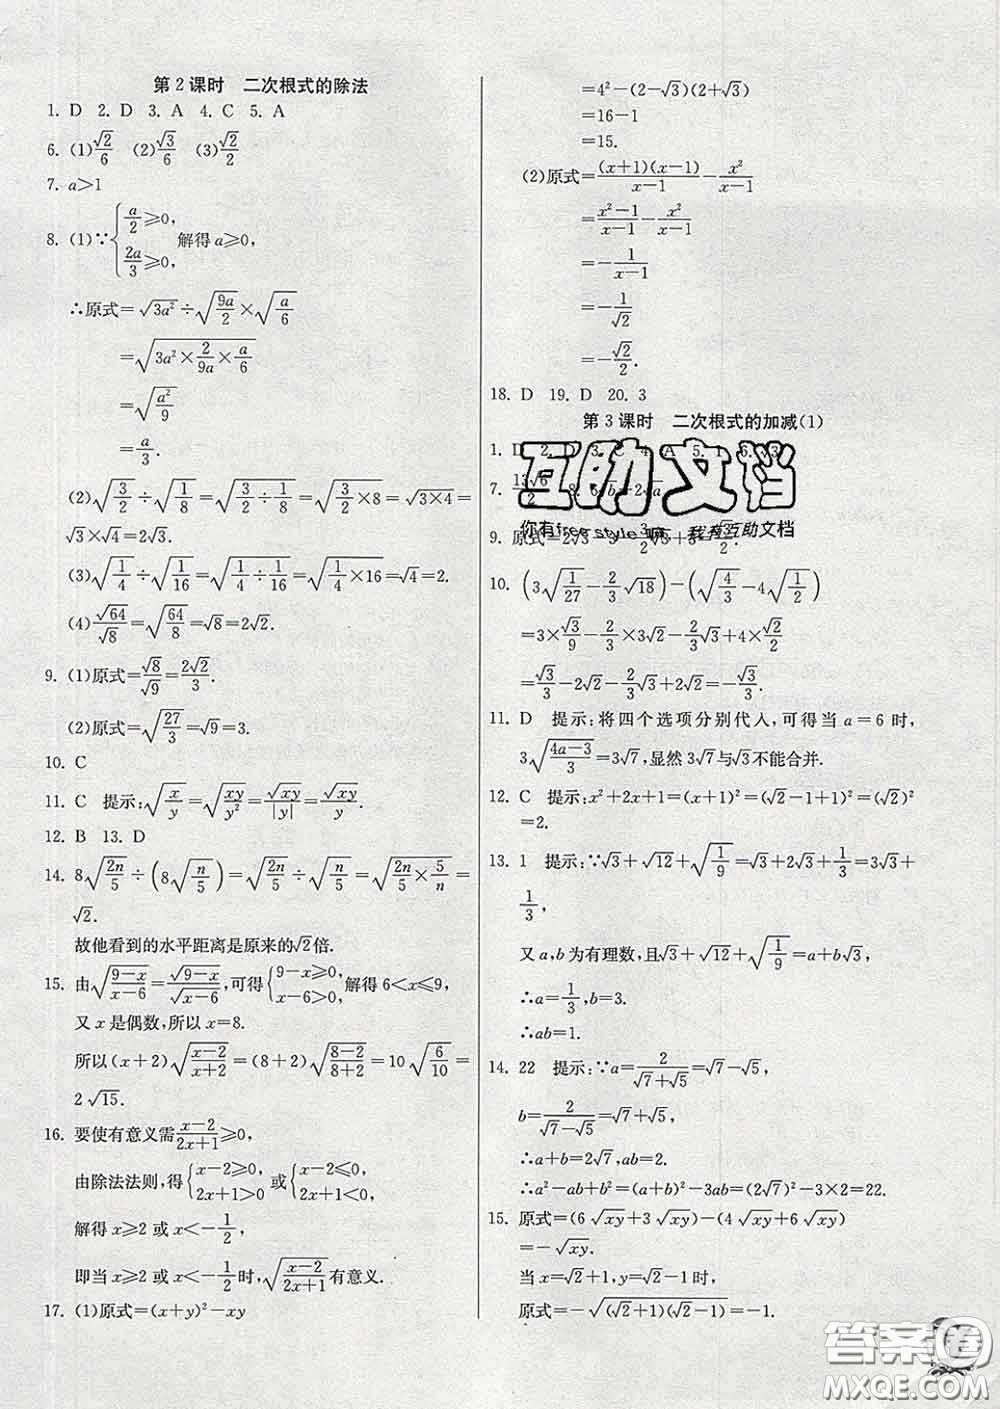 第2课时 二次根式的除法
1. D 2. D 3. A 4. C 5. A
6. (1)√2/6 (2)√3/6 (3)√2/2
7. a>1
8. (1)∵{a/2≥0, 2a/3≥0, 解得a≥0,
∴原式=√(3a²)÷√(9a/2)×√(a/6)
=√(3a²×2/(9a)×a/6)
=√(a²/9)
=a/3.
(2)√(3/2)÷√(1/8)=√(3/2÷1/8)=√(3/2×8)=√(3×4)=
√3×√4=2√3.
(3)√(1/4)÷√(1/16)=√(1/4÷1/16)=√(1/4×16)=√4=2.
(4)√64/√8=√(64/8)=√8=2√2.
9. (1)原式=√8/√9=2√2/3.
(2)原式=√(27/3)=√9=3.
10. C
11. C 提示:√(x/y)=√(xy/y²)=√(xy)/|y|=√(xy)/y.
12. B 13. D
14. 8√(2n/5)÷(8√(n/5))=√(2n/5)÷√(n/5)=√(2n/5×5/n)=
√2.
故他看到的水平距离是原来的√2倍.
15. 由√((9-x)/(x-6))=√(9-x)/√(x-6),可得{9-x≥0, x-6>0, 解得6<x≤9,
又x是偶数,所以x=8.
所以(x+2)√((x-2)/(x+2))=(8+2)√((8-2)/(8+2))=10√(6/10)=
2√15.
16. 要使有意义需(x-2)/(2x+1)≥0,
由除法法则,得{x-2≥0, 2x+1>0 或{x-2≤0, 2x+1<0,
解得x≥2或x<-1/2,
即当x≥2或x<-1/2时,√((x-2)/(2x+1))有意义.
17. (1)原式=(x+y)²-xy
=4²-(2-√3)(2+√3)
=16-1
=15.
(2)原式=(x+1)(x-1)/(x-1)-x²/(x-1)
=(x²-1)/(x-1)-x²/(x-1)
=-1/(x-1)
=-1/√2
=-√2/2.
18. D 19. D 20. 3
第3课时 二次根式的加减(1)
1. D 2. D 3. C 4. A 5. 1 6. √3
7. 13√6/2
9. 原式=2√3
互助文档
你有free style嘛 我有互助文档
10. (3√(1/27)-2/3√18)-(√(4/3)-4√(1/2))
=3×√3/9-2/3×3√2-2/3√3+4×√2/2
=√3/3-2√2-2/3√3+2√2=-√3/3.
11. D 提示:将四个选项分别代入,可得当a=6时,
3√((4a-3)/3)=3√7,显然3√7与√5不能合并.
12. C 提示:x²+2x+1=(x+1)²=(√2-1+1)²=(√2)²
=2.
13. 1 提示:∵√3+√12+√(1/9)=√3+2√3+1/3=3√3+
1/3,
又a,b为有理数,且√3+√12+√(1/9)=a+b√3,
∴a=1/3,b=3.
∴ab=1.
14. 22 提示:∵a=2/(√7+√5)=√7-√5,
b=2/(√7-√5)=√7+√5,
∴a+b=2√7,ab=2.
∴a²-ab+b²=(a+b)²-3ab=(2√7)²-3×2=22.
15. 原式=(6√(xy)+3√(xy))-(4√(xy)+6√(xy))
=-√(xy).
当x=√2+1,y=√2-1时,
原式=-√((√2+1)(√2-1))=-1.
答案圈
MXQE.COM